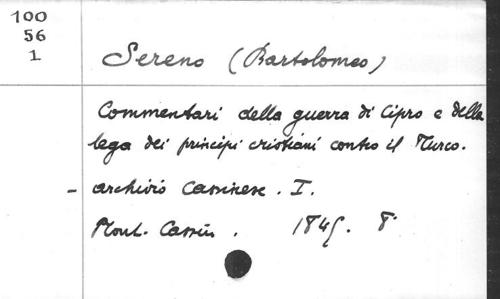 100
56
1
Sereno (Bartolomeo)
Commentari della guerra di Cipro e della
lega dei principi cristiani contro il Turco.
- archivio Cassinese. I.
Mont. Cassin. 1845. 8°